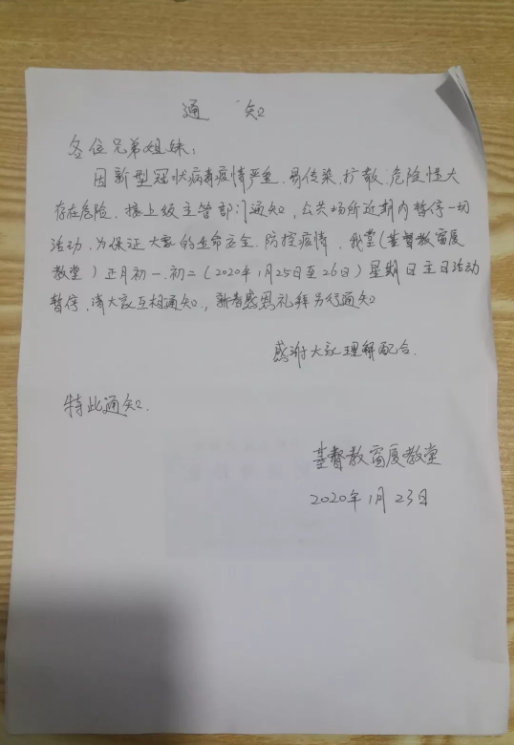 通 知
各位兄弟姐妹：
因新型冠状病毒疫情严重、易传染、扩散、危险性大
存在危险。接上级主管部门通知，公共场所近期内暂停一切
活动，为保证大家的生命安全、防控疫情，我堂（基督教富厦
教堂）正月初一、初二（2020年1月25日至26日）星期日主日活动
暂停，请大家互相通知，新春感恩礼拜另行通知
感谢大家理解配合.
特此通知.
基督教富厦教堂
2020年1月23日